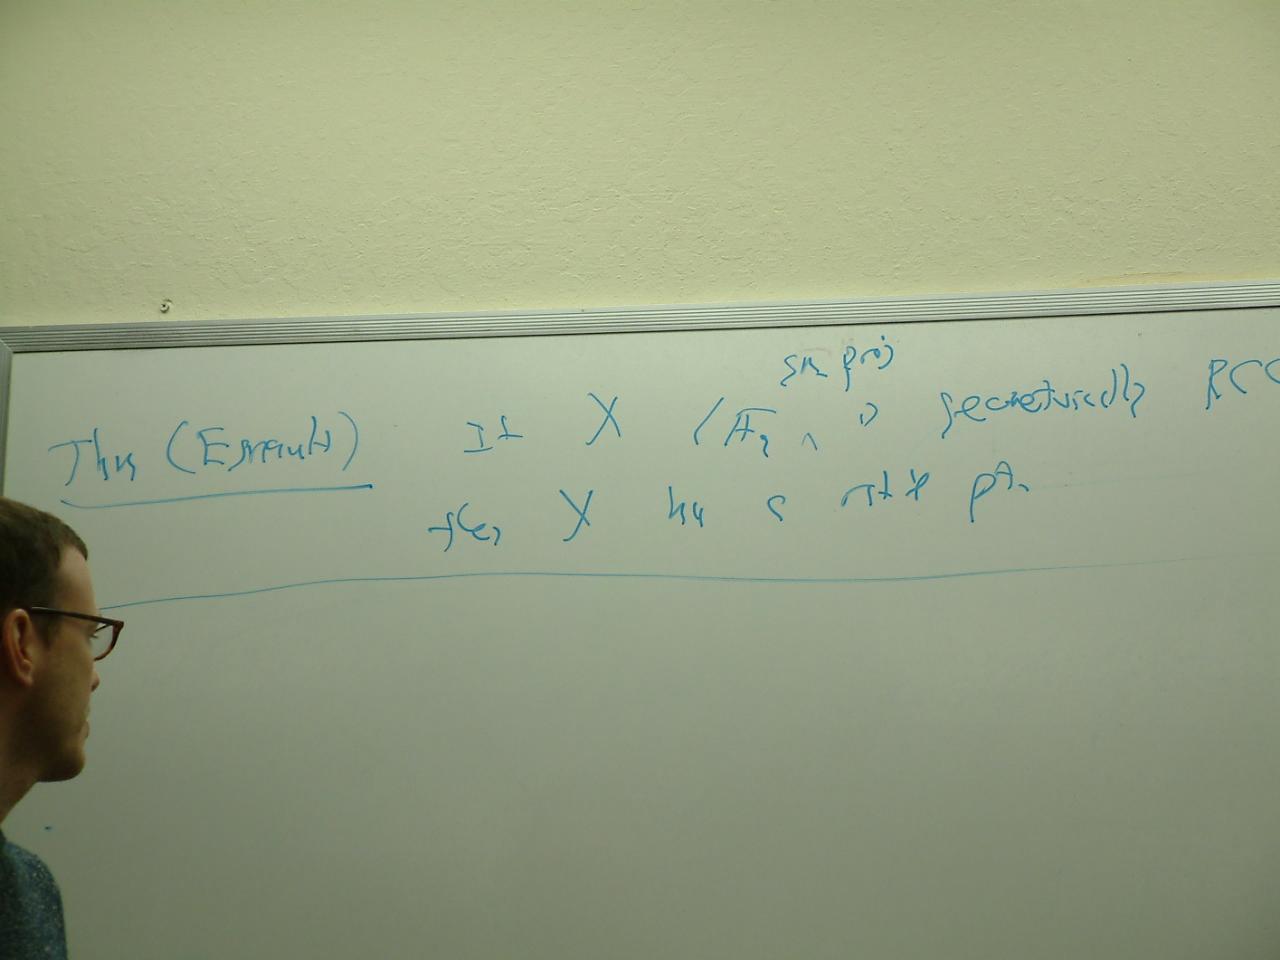 Thm (Esnault) If X / F_q ^ is geometrically RCC
sm proj
then X has a rat'l pt.